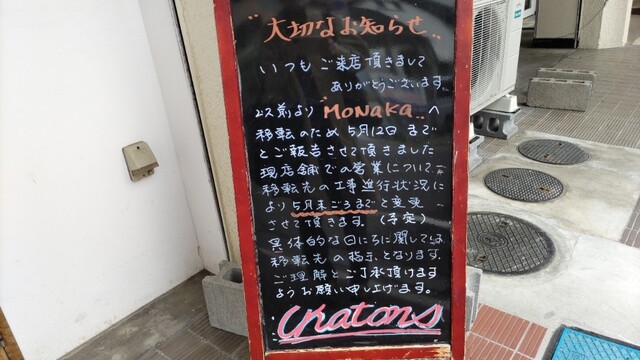 "大切なお知らせ"
いつもご来店頂きまして
ありがとうございます。
以前より "MONAKA" へ
移転のため5月12日まで
とご報告させて頂きました
現店舗での営業について
移転先の工事進行状況に
より5月末ごろまでと変更
させて頂きます。(予定)
具体的な日にちに関しては
移転先の指示となります。
ご理解とご了承頂けます
ようお願い申し上げます。